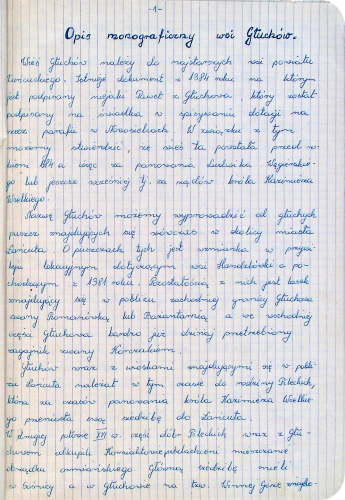 -1-
Opis monograficzny wsi Głuchów.
Wieś Głuchów należy do najstarszych wsi powiatu
łańcuckiego. Istnieje dokument z 1384 roku na którym
jest podpisany niejaki Paweł z Głuchowa, który został
podpisany na świadka w spisywaniu dotacji na
rzecz parafii w Nowosielcach. W związku z tym
możemy stwierdzić, że wieś ta powstała przed ro-
kiem 1384 a więc za panowania Ludwika Węgierskie-
go lub jeszcze wcześniej tj. za rządów króla Kazimierza
Wielkiego.
Nazwę Głuchów możemy wyprowadzić od głuchych
puszcz znajdujących się wówczas w okolicy miasta
Łańcuta. O puszczach tych jest wzmianka w przywi-
leju lokacyjnym dotyczącym wsi Handzlówki a po-
chodzącym z 1381 roku. Pozostałością z nich jest lasek
znajdujący się w pobliżu zachodniej granicy Głuchowa
zwany Romanówką lub Bażantarnią, a we wschodniej
części Głuchowa bardzo już dzisiaj przetrzebiony
zagajnik zwany
Głuchów wraz z wioskami znajdującymi się w pobli-
żu Łańcuta należał w tym czasie do rodziny Pileckich,
która za czasów panowania króla Kazimierza Wielkie-
go przeniosła swą siedzibę do Łańcuta.
W drugiej połowie w. część dóbr Pileckich wraz z Głu-
chowem odkupili mieszczanie
obrządku ormiańskiego. Główną siedzibę mieli
w Sonicy a w Głuchowie na tzw. Winnej Górze znajdo-